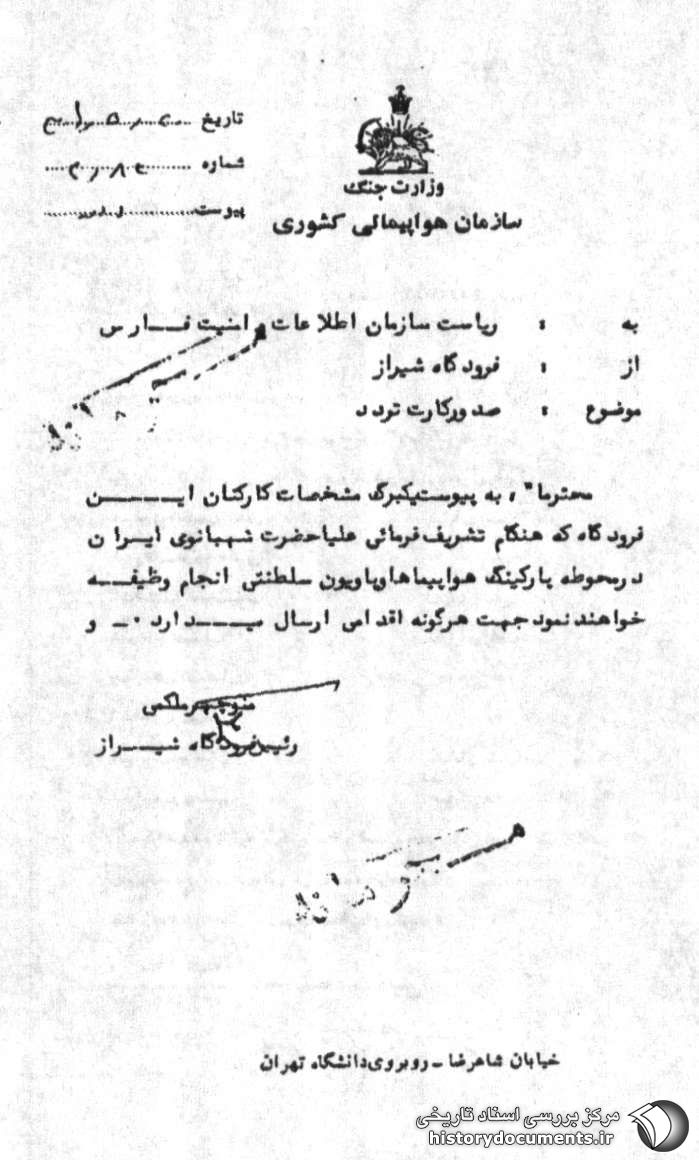 وزارت جنگ
سازمان هواپیمائی کشوری
تاریخ
شماره
پیوست
به : ریاست سازمان اطلاعات و امنیت فـــارس
از : فرودگاه شیراز
موضوع : صدور کارت تردد
محترما"، به پیوست یکبرگ مشخصات کارکنان ایـــــن
فرودگاه که هنگام تشریف فرمائی علیاحضرت شهبانوی ایران
در محوطه پارکینگ هواپیماها و پاویون سلطنتی انجام وظیفـــه
خواهند نمود جهت هرگونه اقدامی ارسال میـــدارد ۰ـ و
منوچهر ملکمی
رئیس فرودگاه شیـــراز
خیابان شاهرضا ـ روبروی دانشگاه تهران
مرکز بررسی اسناد تاریخی
historydocuments.ir